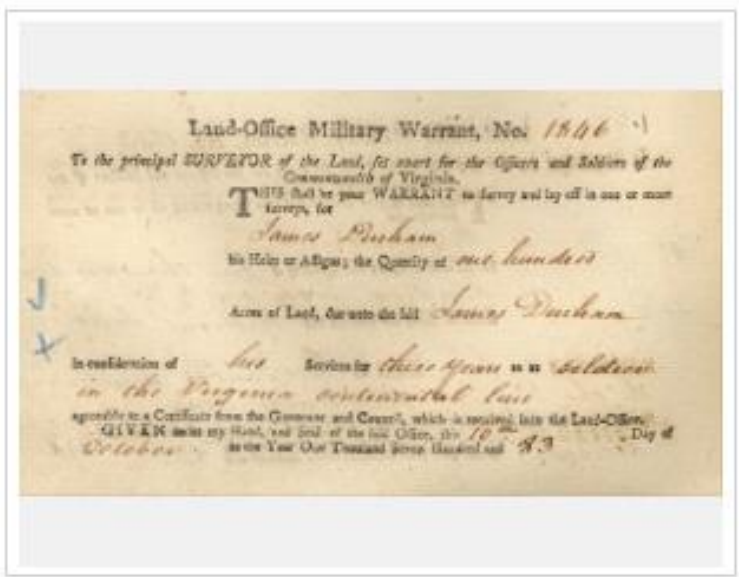 Land-Office Military Warrant, No. 1846
To the principal SURVEYOR of the Land, set apart for the Officers and Soldiers of the
Commonwealth of Virginia.
THIS shall be your WARRANT to survey and lay off in one or more
surveys, for
James Durham
his Heirs or Assigns; the Quantity of one hundred
Acres of Land, due unto the said James Durham
in consideration of his Services for three years as a soldier
in the Virginia continental line
agreeable to a Certificate from the Governor and Council, which is received into the Land-Office.
GIVEN under my Hand, and Seal of the said Office, this 10th Day of
October in the Year One Thousand Seven Hundred and 83